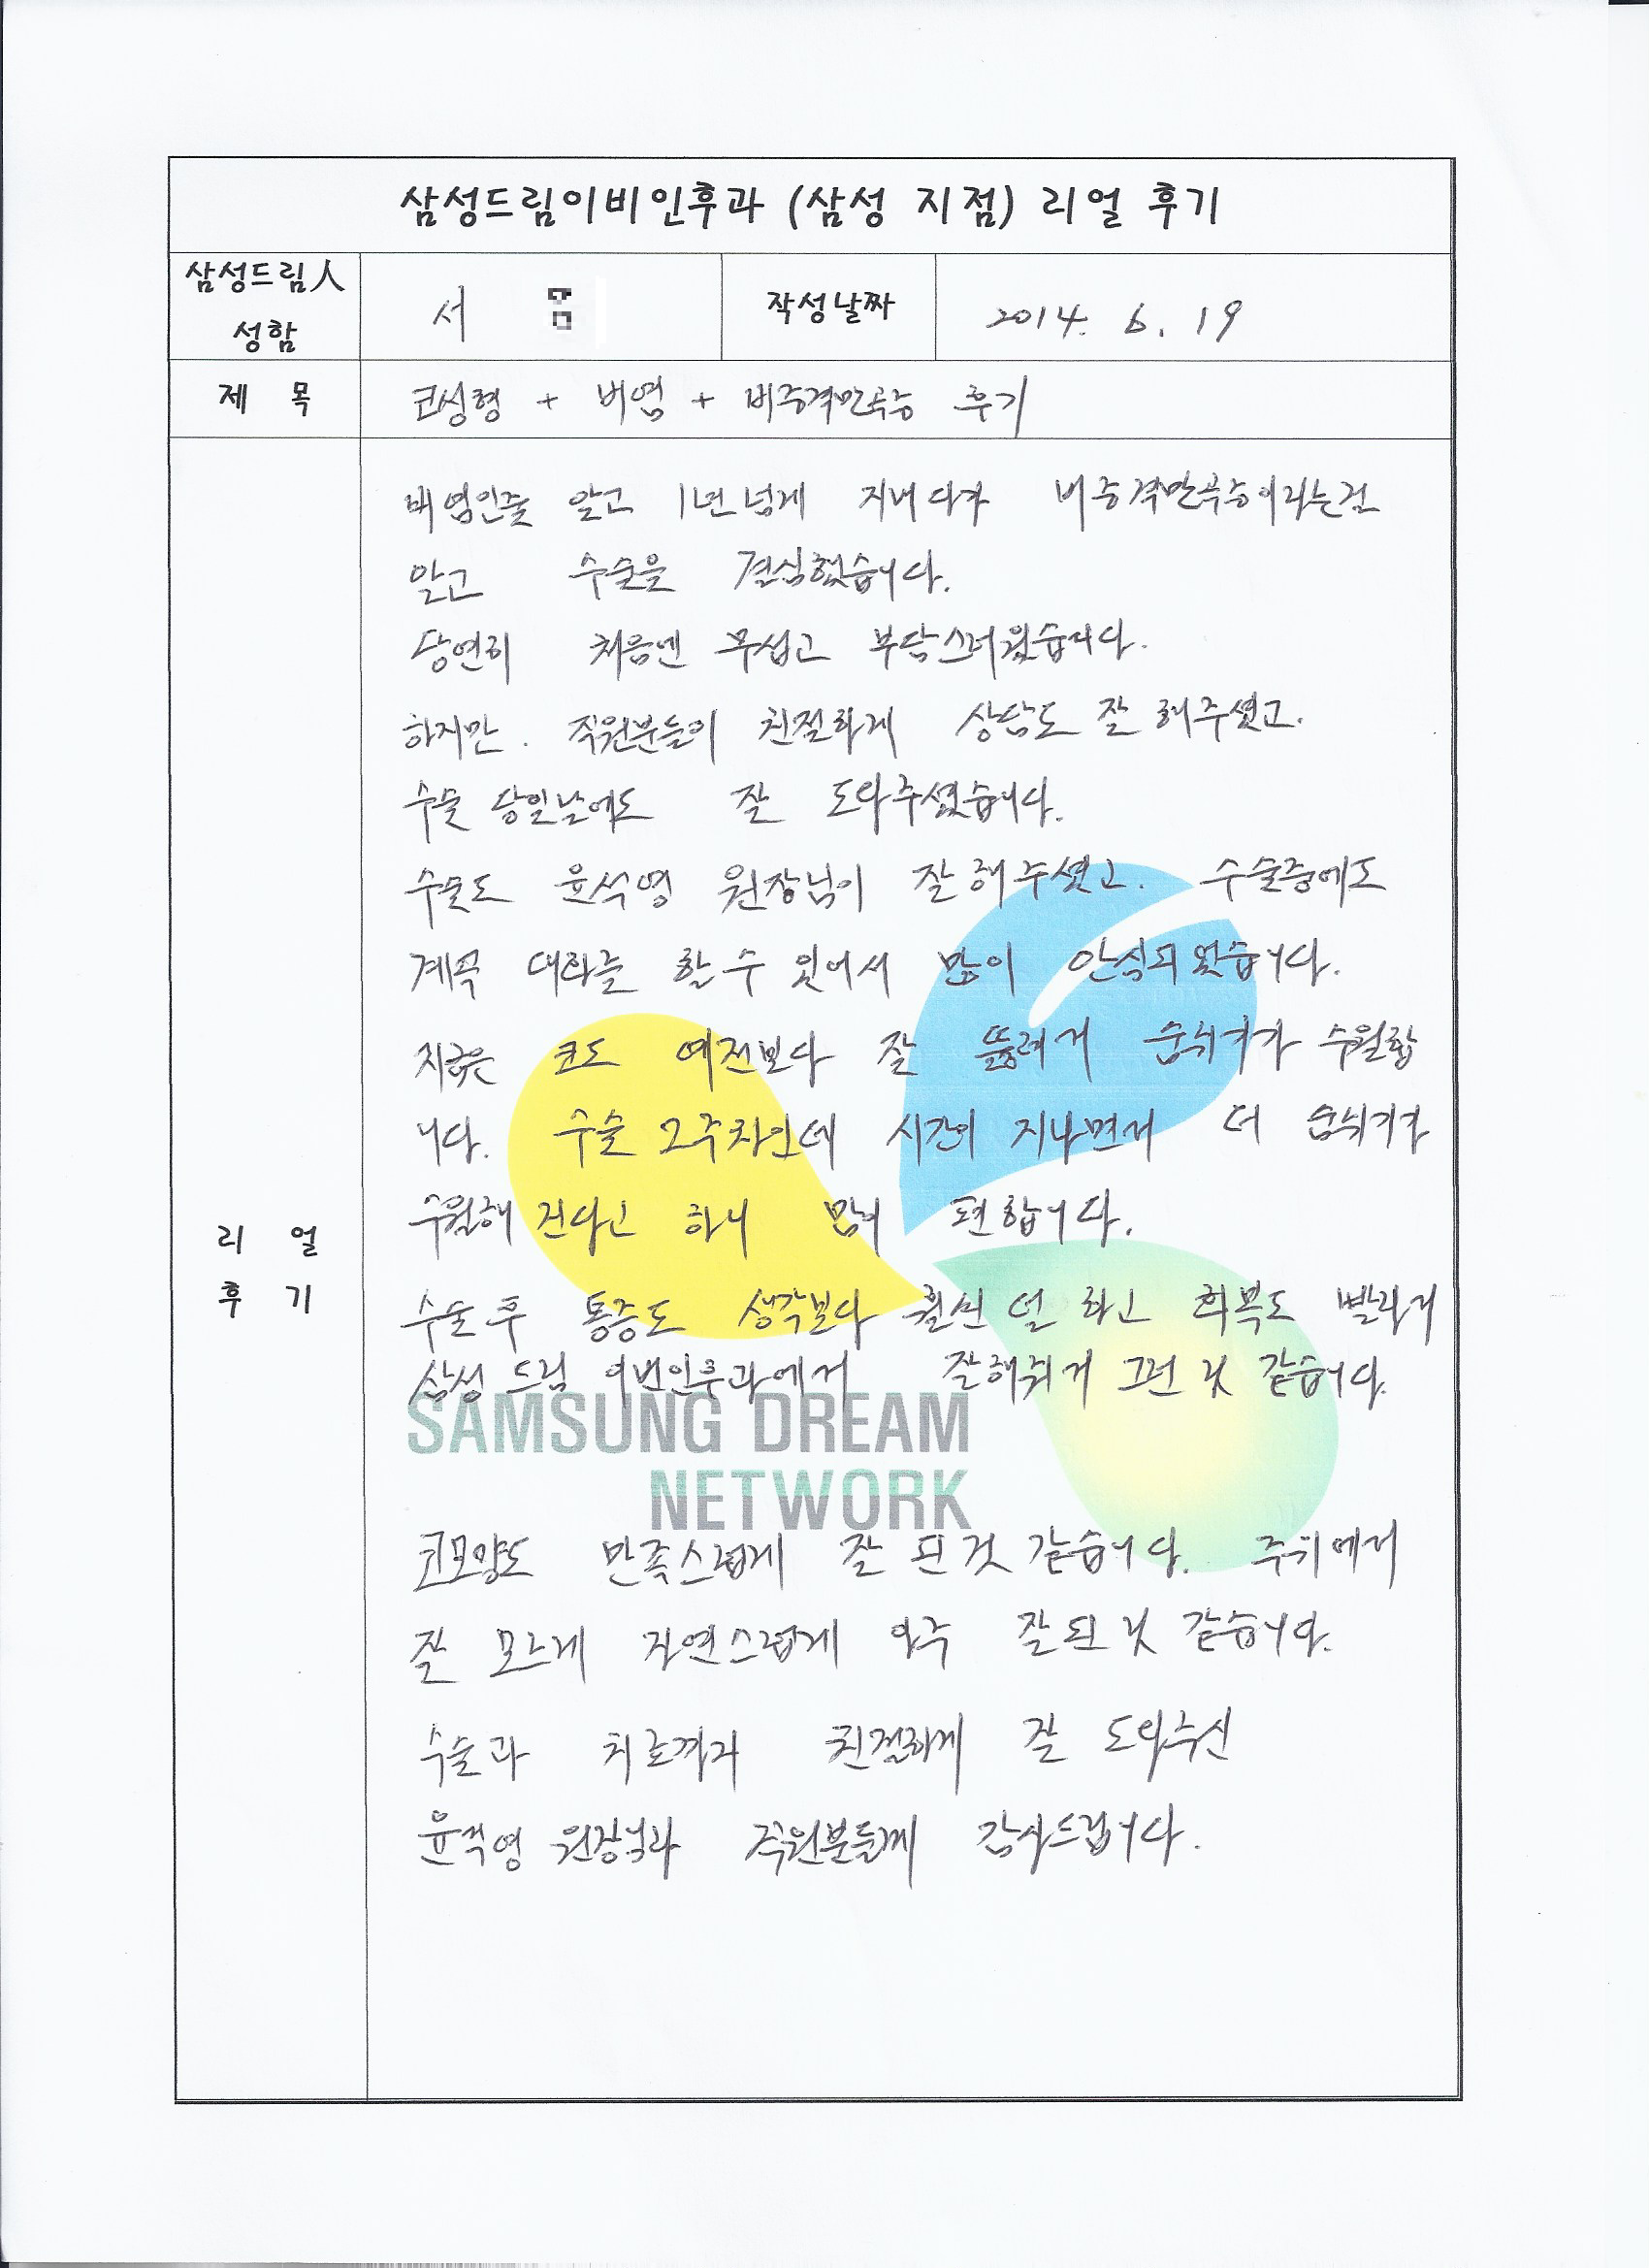 삼성드림이비인후과 (삼성 지점) 리얼 후기
삼성드림人 성함
서
작성날짜
2014. 6. 19
제 목
코성형 + 비염 + 비중격만곡증 후기
리 얼 후 기
비염인줄 알고 1년넘게 지내다가 비중격만곡증이라는걸
알고 수술을 결심했습니다.
당연히 처음엔 무섭고 부담스러웠습니다.
하지만. 직원분들이 친절하게 상담도 잘 해주셨고.
수술 당일날에도 잘 도와주셨습니다.
수술도 윤석영 원장님이 잘 해주셨고. 수술중에도
계속 대화를 할 수 있어서 많이 안심되었습니다.
지금은 코도 예전보다 잘 뚫려서 숨쉬기가 수월합
니다. 수술 2주차인데 시간이 지나면서 더 숨쉬기가
수월해 진다고 하니 맘이 편합니다.
수술 후 통증도 생각보다 훨씬 덜 하고 회복도 빨라서
삼성 드림 이비인후과에서 잘해줘서 그런 것 같습니다.
SAMSUNG DREAM
NETWORK
코모양도 만족스럽게 잘 된것 같습니다. 주위에서
잘 모르게 자연스럽게 아주 잘된 것 같습니다.
수술과 치료까지 친절하게 잘 도와주신
윤석영 원장님과 직원분들께 감사드립니다.